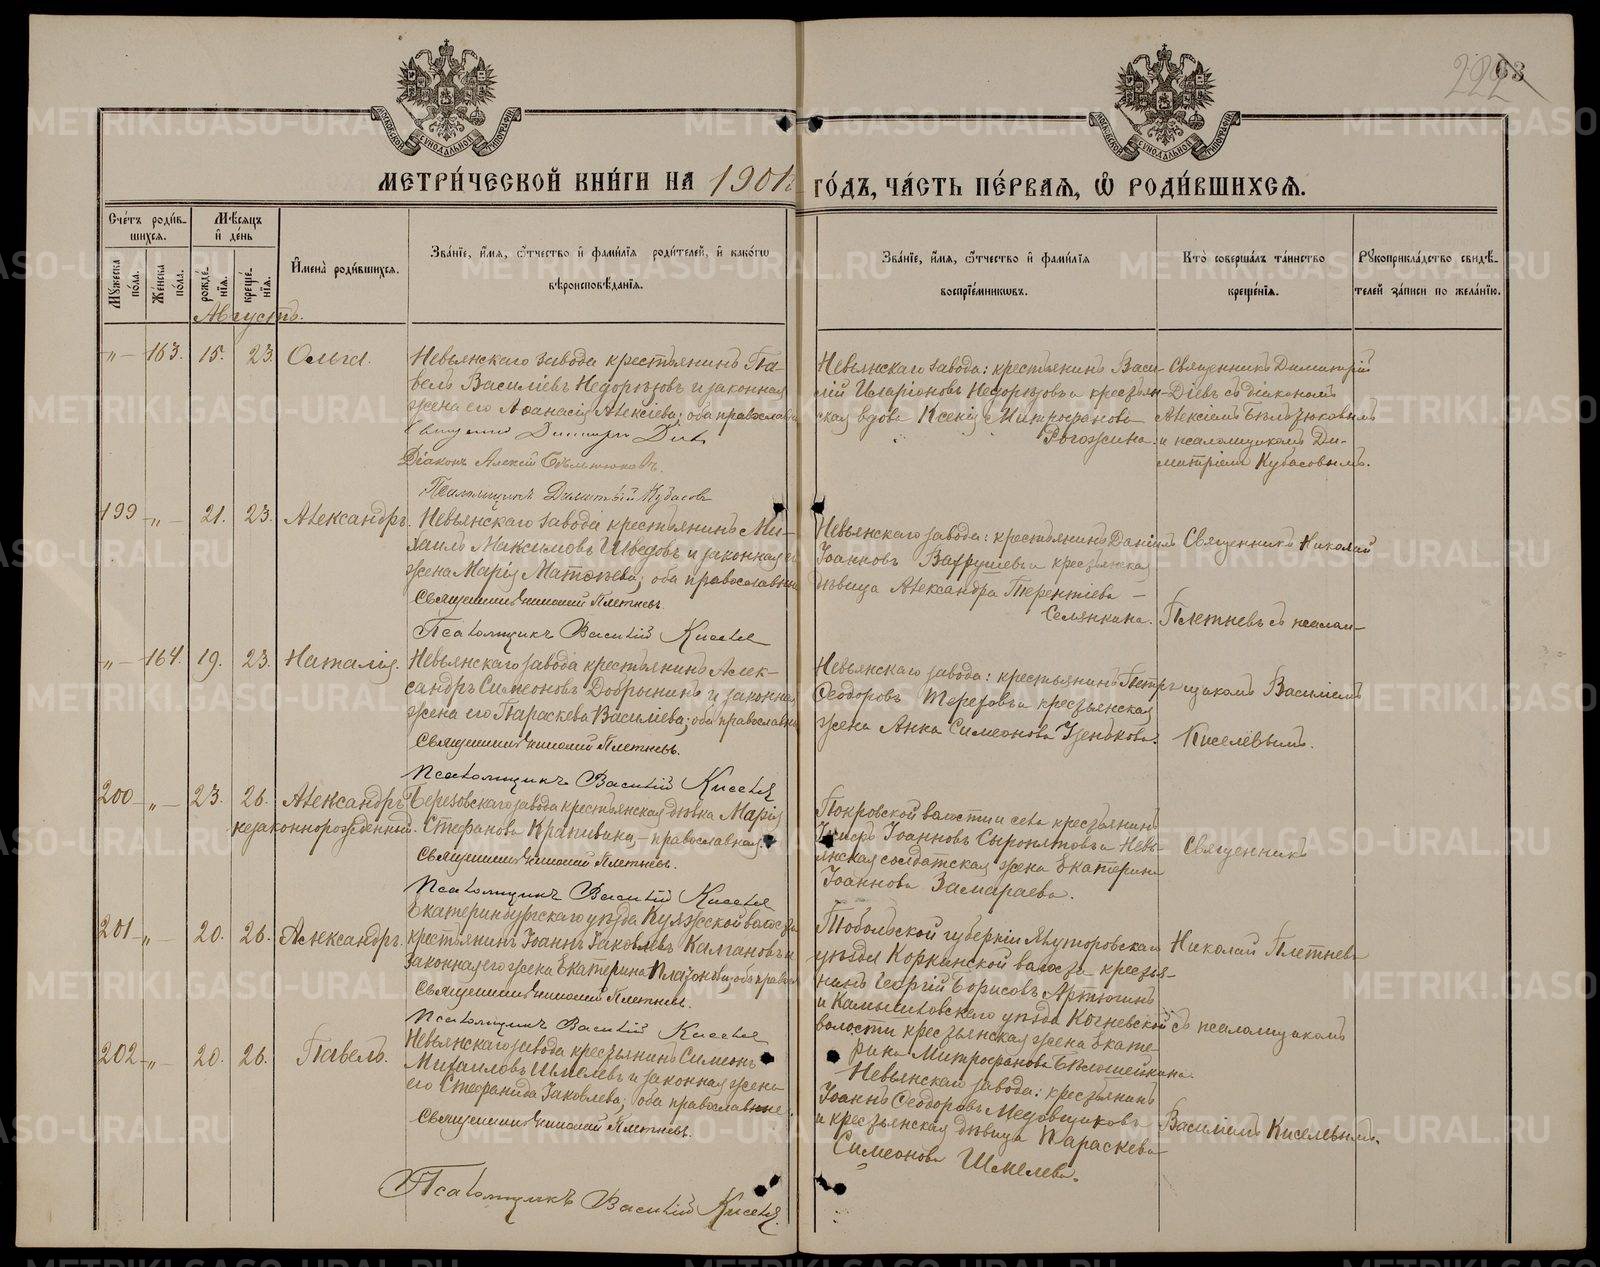 222
63
МОСКОВСКОЙ СѴНОДАЛЬНОЙ ТИПОГРАФІИ
МОСКОВСКОЙ СѴНОДАЛЬНОЙ ТИПОГРАФІИ
МЕТРИ́ЧЕСКОЙ КНИ́ГИ НА 1901 ГО́ДЪ, ЧА́СТЬ ПЕ́РВАѦ, Ѽ РОДИ́ВШИХСѦ.
Сче́тъ роди́вшихсѧ.
Мꙋ́жеска по́ла.
Же́нска по́ла.
Мѣ́сѧцъ и҆ де́нь
рожде́нїѧ.
креще́нїѧ.
И҆мена̀ роди́вшихсѧ.
Зва́нїе, и҆́мѧ, ѻ҆́тчество и҆ фами́лїѧ роди́телей, и҆ како́гѡ
вѣроисповѣ́данїѧ.
Зва́нїе, и҆́мѧ, ѻ҆́тчество и҆ фами́лїѧ
воспрїе́мникѡвъ.
Кто̀ соверша́лъ та́инство
креще́нїѧ.
Рꙋкоприкла́дство свидѣ́телей за́писи по жела́нїю.
Августъ.
„ 163. 15. 23. Ольга.
Невьянскаго завода крестьянинъ Павелъ Василіевъ Недорѣзовъ и законная
жена его Аѳанасія Алексіева; оба православн
Священникъ Димитрій Діевъ
Діаконъ Алексій
Псаломщикъ Димитрій Кубасовъ
Невьянскаго завода: крестьянинъ Василій Иларіоновъ Недорѣзовъ и крестьянская вдова Ксенія Митрофанова
Рогожина.
Священникъ Димитрій
Діевъ съ діакономъ
Алексіемъ
и псаломщикомъ Димитріемъ Кубасовымъ.
199 „ 21. 23. Александръ.
Невьянскаго завода крестьянинъ Михаилъ Максимовъ Шведовъ и законная
жена Марія Матѳеева; оба православны
Священникъ Николай Плетневъ.
Псаломщикъ Василій Киселев
Невьянскаго завода: крестьянинъ Даніилъ
Іоанновъ Вахрушевъ и крестьянская
дѣвица Александра Терентіева
Селянкина.
Священникъ Николай
Плетневъ съ псалом-
„ 164. 19. 23. Наталія.
Невьянскаго завода крестьянинъ Александръ Симеоновъ Добрынинъ и законная
жена его Параскева Василіева; оба православны
Священникъ Николай Плетневъ.
Псаломщикъ Василій Киселев
Невьянскаго завода: крестьянинъ Петръ
Ѳеодоровъ Терехов и крестьянская
жена Анна Симеонова
щикомъ Василіемъ
Киселевымъ.
200 „ 23. 26. Александръ
незаконнорожденный.
Березовскаго завода крестьянская дѣвка Марія
Стефанова Крапивина, православная.
Священникъ Николай Плетневъ.
Псаломщикъ Василій Киселев
Покровской волости и села крестьянинъ
Іоанновъ Сыропятовъ и Невьянская солдатская жена Екатерина
Іоаннова Замараева.
Священникъ
201 „ 20. 26. Александръ.
Екатеринбургскаго уѣзда волости
крестьянинъ Іоаннъ Іаковлевъ Калгановъ и
законная его жена Екатерина
Священникъ Николай Плетневъ.
Псаломщикъ Василій Киселев
Тобольской губерніи Ялуторовскаго
уѣзда Коркинской волости крестьянинъ Георгій Борисовъ Артюгинъ
и Камышловскаго уѣзда Кочневской
волости крестьянская жена Екатерина Митрофанова
Николай Плетневъ
съ псаломщикомъ
202 „ 20. 26. Павелъ.
Невьянскаго завода крестьянинъ Симеонъ
Михаиловъ Шмелевъ и законная жена
его Стефанида Іаковлева; оба православные.
Священникъ Николай Плетневъ.
Псаломщикъ Василій Киселев
Невьянскаго завода: крестьянинъ
Іоаннъ Ѳеодоровъ Медовщиковъ
и крестьянская дѣвица Параскева
Симеонова Шмелева.
Василіемъ Киселевымъ.
METRIKI.GASO-URAL.RU